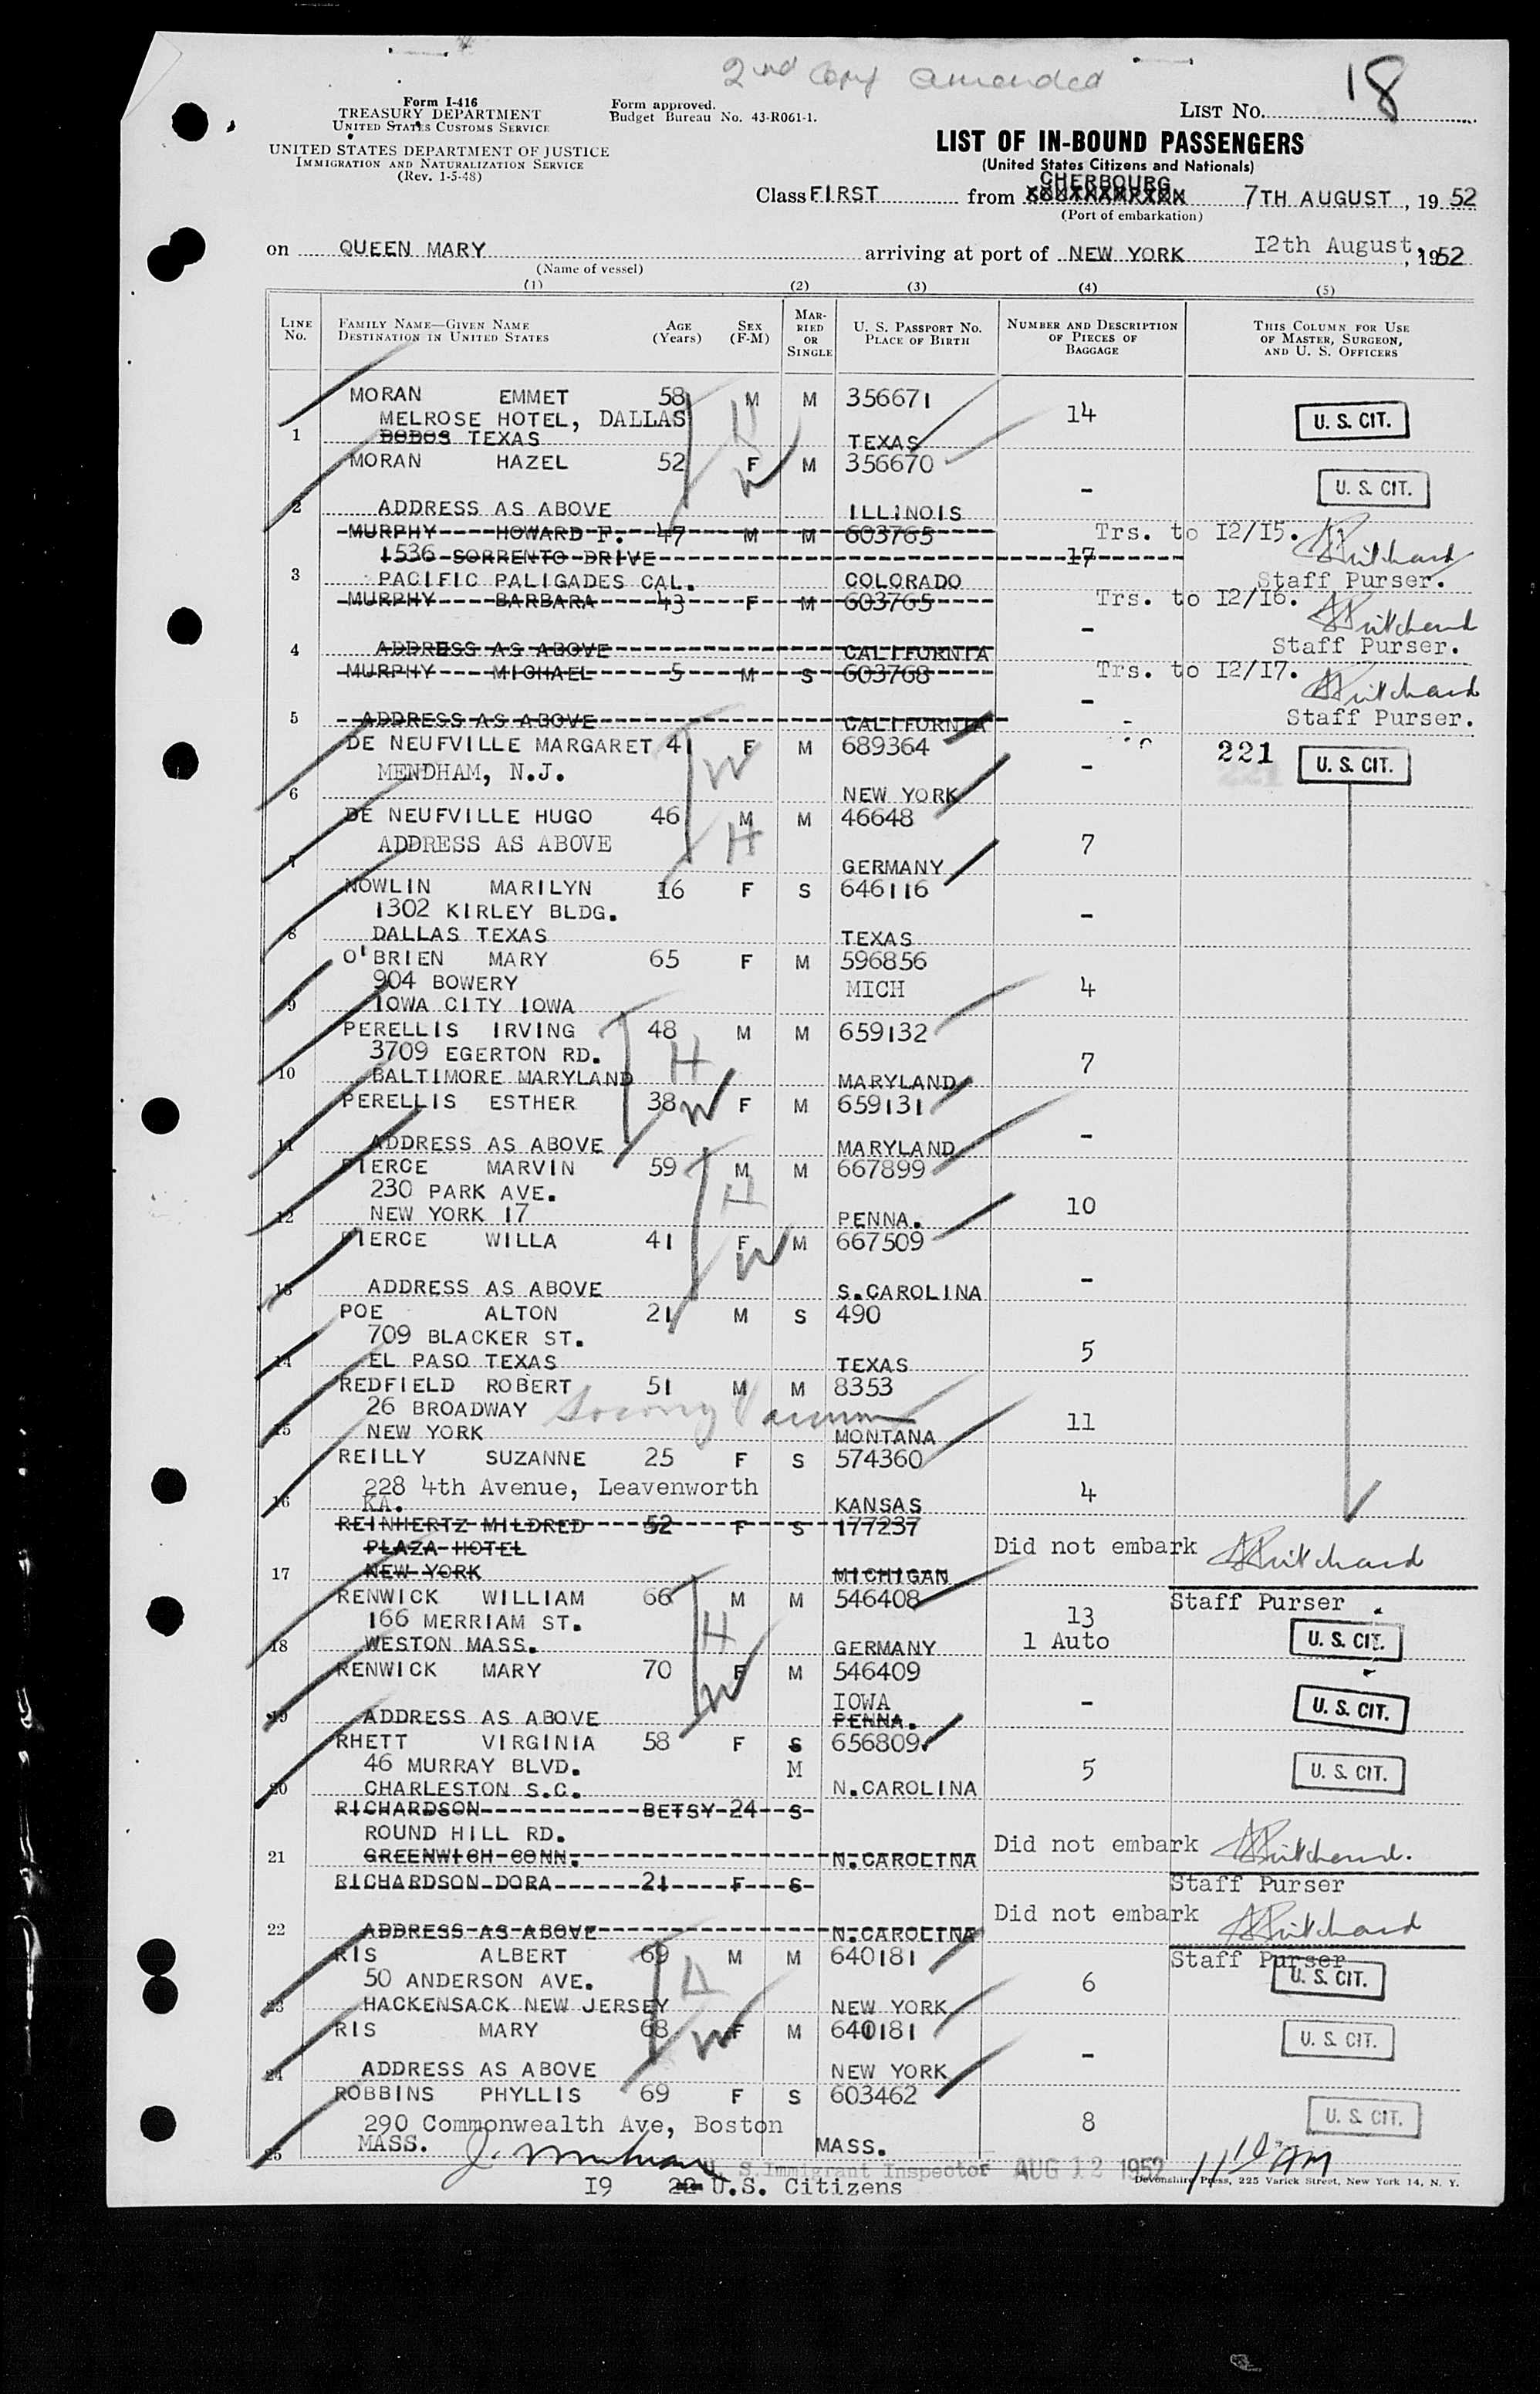 2nd copy amended
18
Form I-416
TREASURY DEPARTMENT
UNITED STATES CUSTOMS SERVICE
UNITED STATES DEPARTMENT OF JUSTICE
IMMIGRATION AND NATURALIZATION SERVICE
(Rev. 1-5-48)
Form approved.
Budget Bureau No. 43-R061-1.
LIST NO.
LIST OF IN-BOUND PASSENGERS
(United States Citizens and Nationals)
Class FIRST from CHERBOURG 7TH AUGUST, 19 52
(Port of embarkation)
on QUEEN MARY arriving at port of NEW YORK 12th August, 1952
(Name of vessel)
(1) (2) (3) (4) (5)
LINE NO. FAMILY NAME—GIVEN NAME DESTINATION IN UNITED STATES AGE (Years) SEX (F-M) MARRIED OR SINGLE U. S. PASSPORT NO. PLACE OF BIRTH NUMBER AND DESCRIPTION OF PIECES OF BAGGAGE THIS COLUMN FOR USE OF MASTER, SURGEON, AND U. S. OFFICERS
MORAN EMMET 58 M M 356671
MELROSE HOTEL, DALLAS 14 U. S. CIT.
1 TEXAS TEXAS
MORAN HAZEL 52 F M 356670
- U. S. CIT.
2 ADDRESS AS ABOVE ILLINOIS
MURPHY HOWARD F. 47 M M 603765 Trs. to I2/I5.
1536 SORRENTO DRIVE 17 Pritchard
3 PACIFIC PALIGADES CAL. COLORADO Staff Purser.
MURPHY BARBARA 43 F M 603765 Trs. to I2/I6.
- Pritchard
4 ADDRESS AS ABOVE CALIFORNIA Staff Purser.
MURPHY MICHAEL 5 M S 603768 Trs. to I2/I7.
- Pritchard
5 ADDRESS AS ABOVE CALIFORNIA Staff Purser.
DE NEUFVILLE MARGARET 41 F M 689364 221 U. S. CIT.
MENDHAM, N.J. -
6 NEW YORK
DE NEUFVILLE HUGO 46 M M 46648
ADDRESS AS ABOVE 7
7 GERMANY
NOWLIN MARILYN 16 F S 646116
1302 KIRLEY BLDG. -
8 DALLAS TEXAS TEXAS
O'BRIEN MARY 65 F M 596856
904 BOWERY MICH 4
9 IOWA CITY IOWA
PERELLIS IRVING 48 M M 659132
3709 EGERTON RD. 7
10 BALTIMORE MARYLAND MARYLAND
PERELLIS ESTHER 38 F M 659131
-
11 ADDRESS AS ABOVE MARYLAND
PIERCE MARVIN 59 M M 667899
230 PARK AVE. 10
12 NEW YORK 17 PENNA.
PIERCE WILLA 41 F M 667509
-
13 ADDRESS AS ABOVE S.CAROLINA
POE ALTON 21 M S 490
709 BLACKER ST. 5
14 EL PASO TEXAS TEXAS
REDFIELD ROBERT 51 M M 8353
26 BROADWAY Socony Vacuum 11
15 NEW YORK MONTANA
REILLY SUZANNE 25 F S 574360
228 4th Avenue, Leavenworth 4
16 KA. KANSAS
REINHERTZ MILDRED 52 F S 177237
PLAZA HOTEL Did not embark Pritchard
17 NEW YORK MICHIGAN
RENWICK WILLIAM 66 M M 546408 Staff Purser
166 MERRIAM ST. 13
18 WESTON MASS. GERMANY 1 Auto U. S. CIT.
RENWICK MARY 70 F M 546409
IOWA - U. S. CIT.
19 ADDRESS AS ABOVE PENNA.
RHETT VIRGINIA 58 F S 656809
46 MURRAY BLVD. M 5 U. S. CIT.
20 CHARLESTON S.C. N.CAROLINA
RICHARDSON BETSY 24 S
ROUND HILL RD. Did not embark Pritchard.
21 GREENWICH CONN. N.CAROLINA
RICHARDSON DORA 21 F S Staff Purser
Did not embark Pritchard
22 ADDRESS AS ABOVE N.CAROLINA
RIS ALBERT 69 M M 640181 Staff Purser
50 ANDERSON AVE. 6 U. S. CIT.
23 HACKENSACK NEW JERSEY NEW YORK
RIS MARY 68 F M 640181
- U. S. CIT.
24 ADDRESS AS ABOVE NEW YORK
ROBBINS PHYLLIS 69 F S 603462
290 Commonwealth Ave, Boston 8 U. S. CIT.
25 MASS. MASS.
U. S. Immigrant Inspector AUG 12 1952 11 10 AM
I9 22 U.S. Citizens
Devonshire Press, 225 Varick Street, New York 14, N. Y.